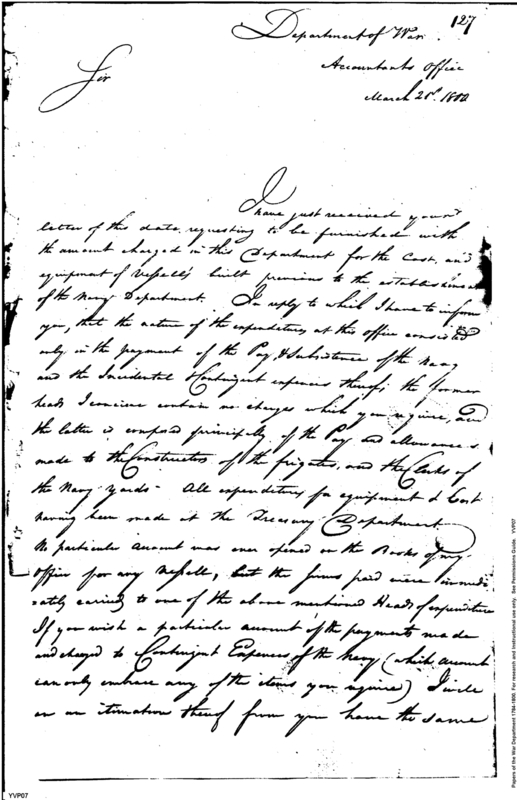 127
Department of War
Accountants Office
March 28th. 1800
Sir
I have just received your
letter of this date, requesting to be furnished with
the amount charged in this Department for the Cost, and
equipment of Vessells built previous to the establishment
of the Navy Department. In reply to which I have to inform
you, that the nature of the expenditures at this office consisted
only in the payment of the Pay, & Subsistence of the Navy
and the Incidental & Contingent expences thereof; the former
heads I conceive contain no charges which you require, and
the latter is composed principally of the Pay and allowances
made to the Constructors of the frigates, and the Clerks of
the Navy Yards - All expenditures for equipment & Cost
having been made at the Treasury Department
No particular account was ever opened on the Books of my
office for any Vessell, but the sums paid were immedi
ately carried to one of the above mentioned Heads of expenditure
If you wish a particular account of the payments made
and charged to Contingent Expences of the Navy (which account
can only embrace any of the items you require) I will
on an intimation thereof from you have the same
YVP07
Papers of the War Department 1784-1800. For research and instructional use only. See Permissions Guide. YVP07